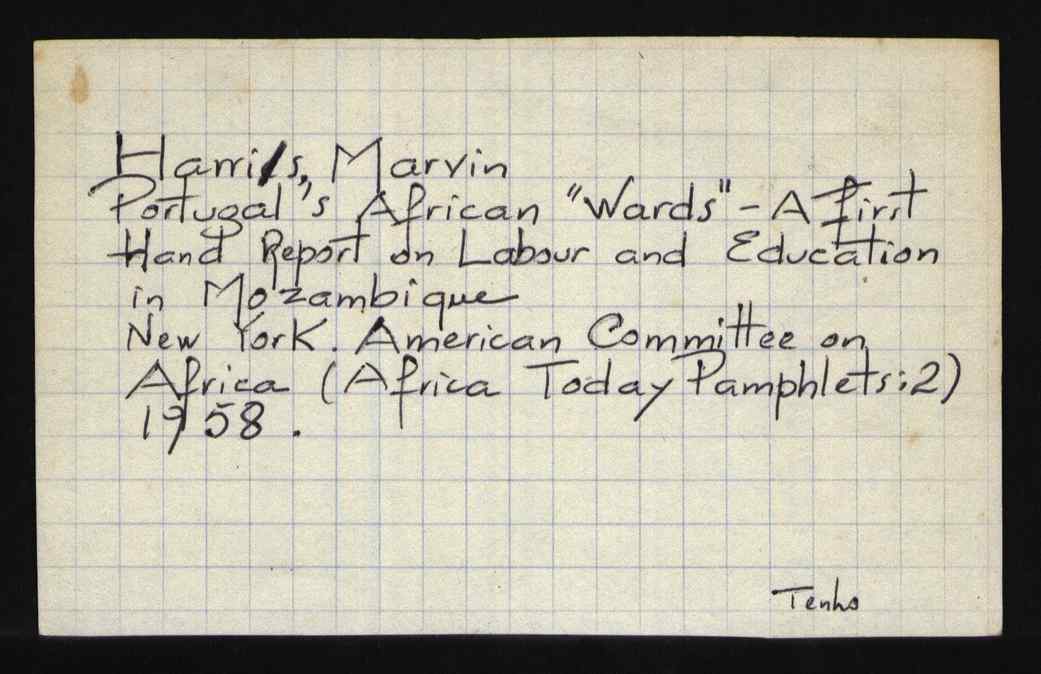 Harris, Marvin
Portugal's African "Wards" - A first
Hand Report on Labour and Education
in Mozambique
New York. American Committee on
Africa (Africa Today Pamphlets:2)
1958.
Tenho